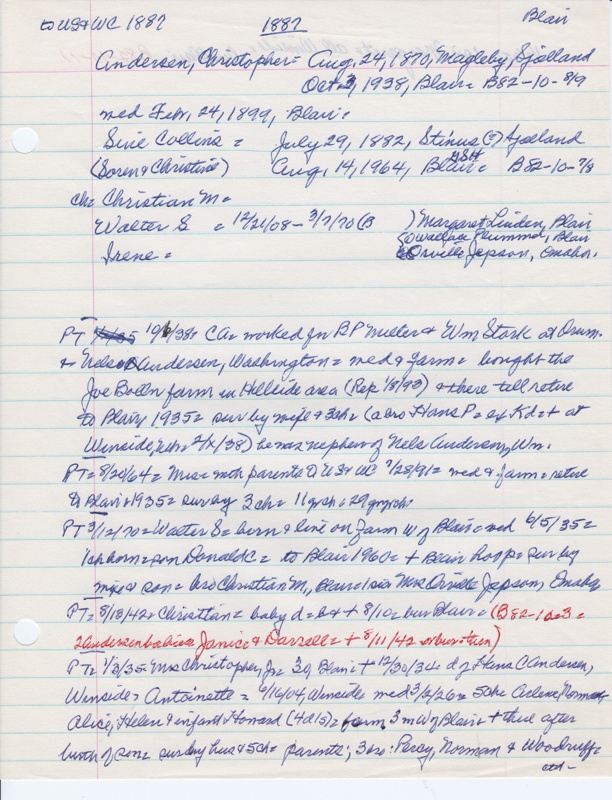 to US + WC 1887 1887 Blair
Andersen, Christopher = Aug, 24, 1870, Magleby, Sjolland
Oct 3, 1938, Blair = B82-10-8/9
med Febr, 24, 1899, Blair =
Sine Collins = July 29, 1882, Stinus (?) Sjolland
(Soren & Christine) Aug, 14, 1964, Blair = B82-10-7/8
GSH
ch = Christian M =
Walter S = 12/21/08 - 3/7/70 (B ) Margaret Linden, Blair
(1) Wallace Plummer, Blair
Irene = (2) Orville Jepson, Omaha.
PT 10/6/38 = CA = worked for B P Miller & Wm Stork at Orum.
+ Nels Andersen, Washington = med & farm = bought the
Joe Bolln farm in Hillside area (Rep 1/8/93) & there till retire
to Blair 1935 = sur by wife & 3 ch = (a bro Hans P = of Kd = + at
Winside, 2/x/38) he was nephew of Nels Andersen, Wn.
PT = 8/20/64 = Mrs = with parents to US + WC 7/28/91 = med & farm = retire
to Blair 1935 = sur by 3 ch = 11 grch = 29 grgrch
PT 3/12/70 = Walter S = born & live on farm W of Blair = med 6/5/35 =
1 ch born = son Donald C = to Blair 1960 = + Blair hosp = sur by
wife & son = bro Christian M, Blair = 1 sis Mrs Orville Jepson, Omaha
PT = 8/13/42 = Christian = baby d = b & + 8/10 = bur Blair = (B82-10-3 =
2 Andersen babies Janice & Darrell = + 8/11/42 or bur then)
PT = 1/3/35 = Mrs Christopher, Jr = 30, Blair + 12/30/34 = d of Hans C Andersen,
Winside = Antoinette = 9/16/04, Winside med 3/2/26 = 5 ch = Arlene, Norma,
Alice, Helen & infant Howard (4 d 15) = farm 3 m W of Blair + thed after
birth of son = sur by hus & 5 ch = parents; 3 bro: Percy, Norman & Woodruff =
ctd -